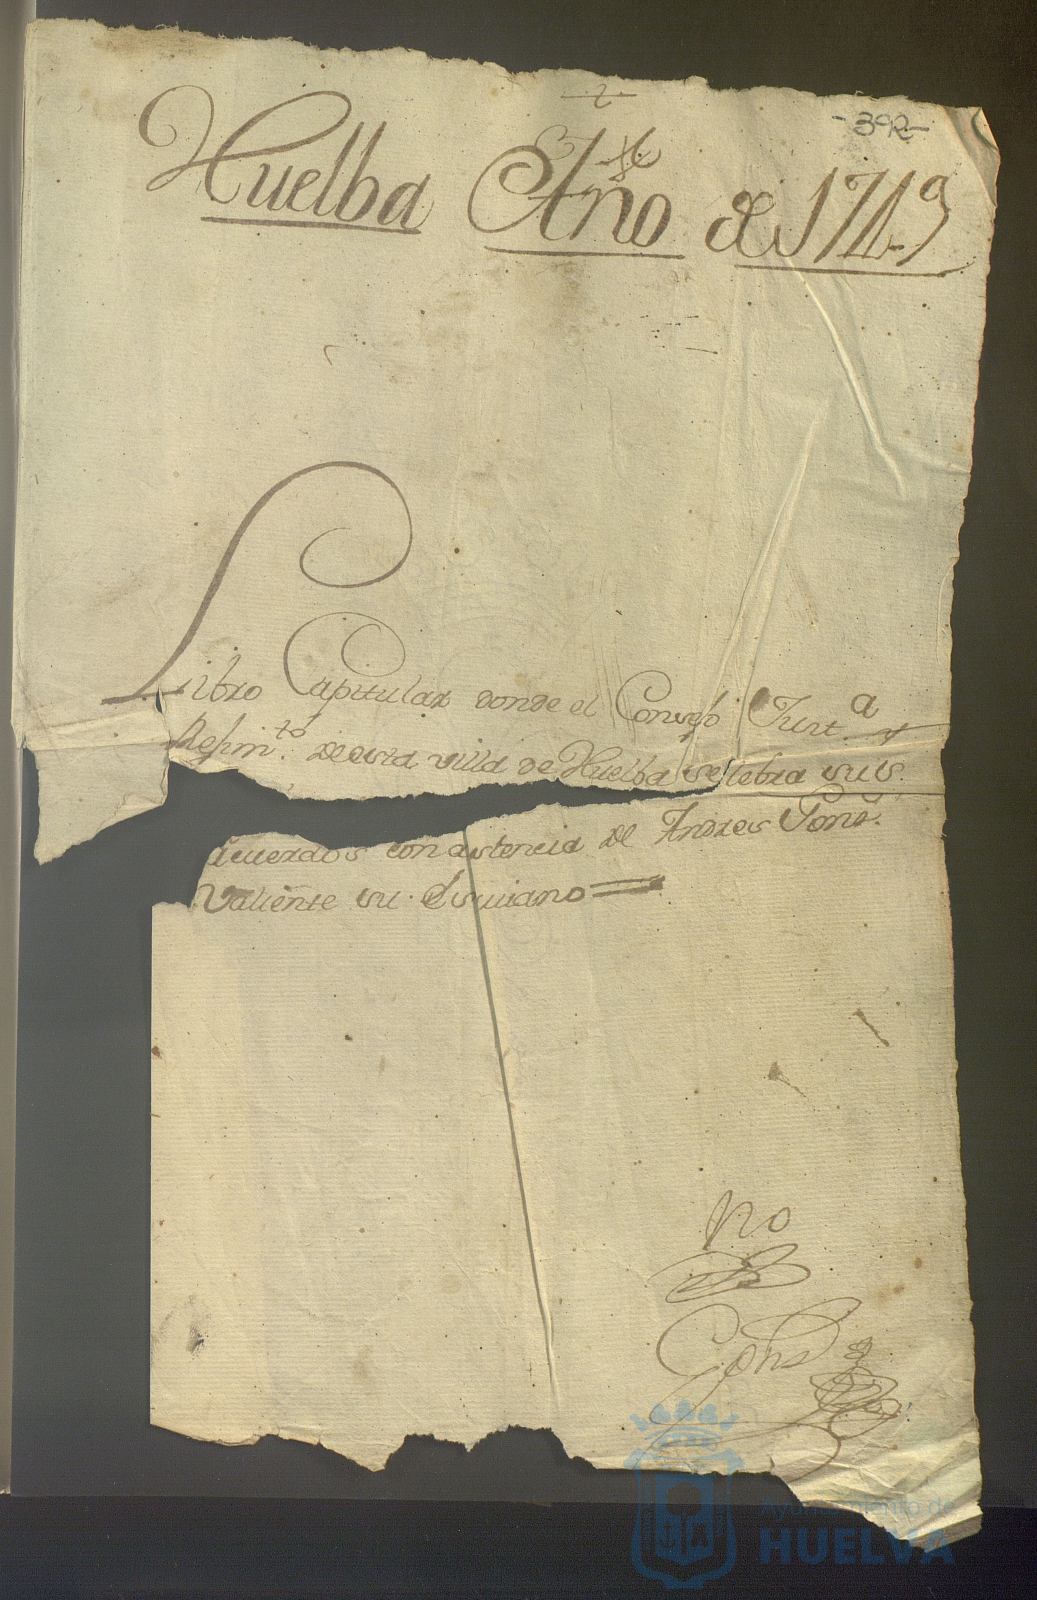 -392-
Huelba Año de 1749
Libro Capitular donde el Consejo Just.a y
Rejim.to de esta villa de Huelba selebra sus
acuerdos con asistencia de Andres
Valiente su Escriuano
Ayuntamiento de
HUELVA